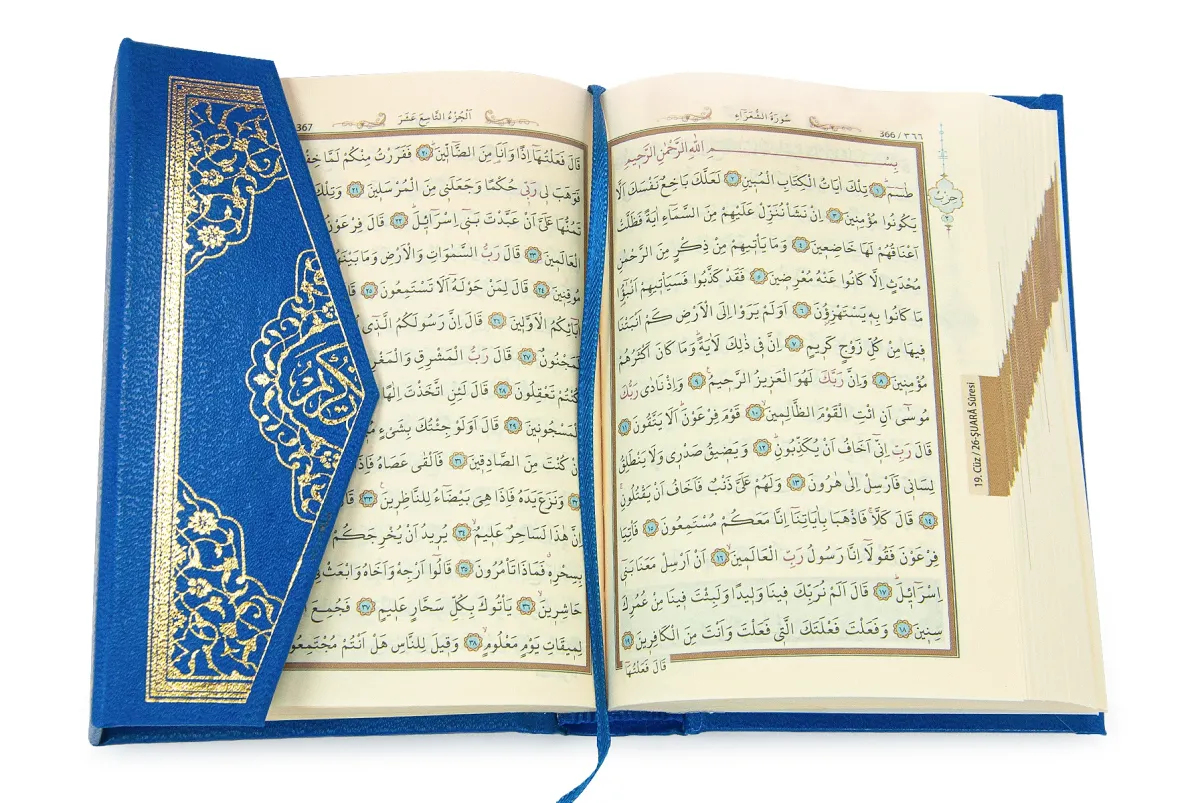 سُورَةُ الشُّعَرَاءِ
366 / ٣٦٦
بِسْمِ اللّٰهِ الرَّحْمٰنِ الرَّحِيمِ
طٰسٓمٓ ﴿١﴾ تِلْكَ اٰيَاتُ الْكِتَابِ الْمُبٖينِ ﴿٢﴾ لَعَلَّكَ بَاخِعٌ نَفْسَكَ اَلَّا
يَكُونُوا مُؤْمِنٖينَ ﴿٣﴾ اِنْ نَشَأْ نُنَزِّلْ عَلَيْهِمْ مِنَ السَّمَٓاءِ اٰيَةً فَظَلَّتْ
اَعْنَاقُهُمْ لَهَا خَاضِعٖينَ ﴿٤﴾ وَمَا يَأْتٖيهِمْ مِنْ ذِكْرٍ مِنَ الرَّحْمٰنِ
مُحْدَثٍ اِلَّا كَانُوا عَنْهُ مُعْرِضٖينَ ﴿٥﴾ فَقَدْ كَذَّبُوا فَسَيَأْتٖيهِمْ اَنْبٰٓؤُ۬ا
مَا كَانُوا بِهٖ يَسْتَهْزِؤُ۫نَ ﴿٦﴾ اَوَلَمْ يَرَوْا اِلَى الْاَرْضِ كَمْ اَنْبَتْنَا
فٖيهَا مِنْ كُلِّ زَوْجٍ كَرٖيمٍ ﴿٧﴾ اِنَّ فٖى ذٰلِكَ لَاٰيَةًۜ وَمَا كَانَ اَكْثَرُهُمْ
مُؤْمِنٖينَ ﴿٨﴾ وَاِنَّ رَبَّكَ لَهُوَ الْعَزٖيزُ الرَّحٖيمُ ﴿٩﴾ وَاِذْ نَادٰى رَبُّكَ
مُوسٰٓى اَنِ ائْتِ الْقَوْمَ الظَّالِمٖينَ ﴿١٠﴾ قَوْمَ فِرْعَوْنَۜ اَلَا يَتَّقُونَ ﴿١١﴾
قَالَ رَبِّ اِنّٖٓى اَخَافُ اَنْ يُكَذِّبُونِ ﴿١٢﴾ وَيَضٖيقُ صَدْرٖى وَلَا يَنْطَلِقُ
لِسَانٖى فَاَرْسِلْ اِلٰى هٰرُونَ ﴿١٣﴾ وَلَهُمْ عَلَىَّ ذَنْبٌ فَاَخَافُ اَنْ يَقْتُلُونِ
﴿١٤﴾ قَالَ كَلَّاۚ فَاذْهَبَا بِاٰيَاتِنَٓا اِنَّا مَعَكُمْ مُسْتَمِعُونَ ﴿١٥﴾ فَأْتِيَا
فِرْعَوْنَ فَقُولَٓا اِنَّا رَسُولُ رَبِّ الْعَالَمٖينَ ﴿١٦﴾ اَنْ اَرْسِلْ مَعَنَا بَنٖٓى
اِسْرَٓائٖلَ ﴿١٧﴾ قَالَ اَلَمْ نُرَبِّكَ فٖينَا وَلٖيدًا وَلَبِثْتَ فٖينَا مِنْ عُمُرِكَ
سِنٖينَ ﴿١٨﴾ وَفَعَلْتَ فَعْلَتَكَ الَّتٖى فَعَلْتَ وَاَنْتَ مِنَ الْكَافِرٖينَ ﴿١٩﴾
قَالَ فَعَلْتُهَٓا
حِزْبٌ
٢
19. Cüz / 26-ŞUARÂ Sûresi
اَلْجُزْءُ التَّاسِعَ عَشَرَ
367
قَالَ فَعَلْتُهَٓا اِذًا وَاَنَا۬ مِنَ الضَّٓالّٖينَ ﴿٢٠﴾ فَفَرَرْتُ مِنْكُمْ لَمَّا
فَوَهَبَ لٖى رَبّٖى حُكْمًا وَجَعَلَنٖى مِنَ الْمُرْسَلٖينَ ﴿٢١﴾ وَتِلْكَ
تَمُنُّهَا عَلَىَّ اَنْ عَبَّدْتَ بَنٖٓى اِسْرَٓائٖلَ ﴿٢٢﴾ قَالَ فِرْعَوْنُ
الْعَالَمٖينَ ﴿٢٣﴾ قَالَ رَبُّ السَّمٰوَاتِ وَالْاَرْضِ وَمَا بَيْنَهُمَا
مُوقِنٖينَ ﴿٢٤﴾ قَالَ لِمَنْ حَوْلَهُٓ اَلَا تَسْتَمِعُونَ ﴿٢٥﴾ قَالَ
اٰبَٓائِكُمُ الْاَوَّلٖينَ ﴿٢٦﴾ قَالَ اِنَّ رَسُولَكُمُ الَّذٖٓى
لَمَجْنُونٌ ﴿٢٧﴾ قَالَ رَبُّ الْمَشْرِقِ وَالْمَغْرِ
كُنْتُمْ تَعْقِلُونَ ﴿٢٨﴾ قَالَ لَئِنِ اتَّخَذْتَ اِلٰهًا
الْمَسْجُونٖينَ ﴿٢٩﴾ قَالَ اَوَلَوْ جِئْتُكَ بِشَىْءٍ
اِنْ كُنْتَ مِنَ الصَّادِقٖينَ ﴿٣١﴾ فَاَلْقٰى عَصَاهُ فَاِذَا
﴿٣٢﴾ وَنَزَعَ يَدَهُ فَاِذَا هِىَ بَيْضَٓاءُ لِلنَّاظِرٖينَ ﴿٣٣﴾ قَالَ
اِنَّ هٰذَا لَسَاحِرٌ عَلٖيمٌ ﴿٣٤﴾ يُرٖيدُ اَنْ يُخْرِجَكُمْ
بِسِحْرِهٖۗ فَمَاذَا تَأْمُرُونَ ﴿٣٥﴾ قَالُٓوا اَرْجِهْ وَاَخَاهُ وَابْعَثْ فِى
حَاشِرٖينَ ﴿٣٦﴾ يَأْتُوكَ بِكُلِّ سَحَّارٍ عَلٖيمٍ ﴿٣٧﴾ فَجُمِعَ
لِمٖيقَاتِ يَوْمٍ مَعْلُومٍ ﴿٣٨﴾ وَقٖيلَ لِلنَّاسِ هَلْ اَنْتُمْ مُجْتَمِعُونَ